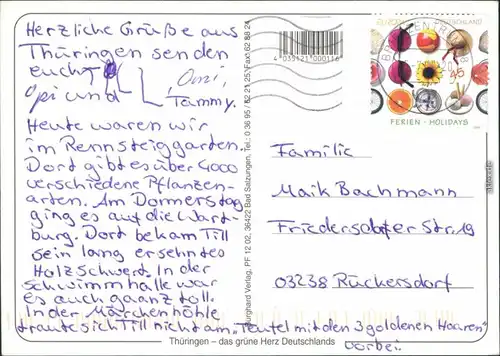 Herzliche Grüße aus
Thüringen senden
euch
Omi,
Opi und
Tammy.
Heute waren wir
im Rennsteiggarten.
Dort gibt es über 4000
verschiedene Pflanzen-
arten. Am Donnerstag
ging es auf die Wart-
burg. Dort bekam Till
sein lang ersehntes
Holzschwert. In der
Schwimmhalle war
es auch gaanz toll.
In der Märchenhöhle
traute sich Till nicht am „Teufel mit den 3 goldenen Haaren"
vorbei.
Thüringen – das grüne Herz Deutschlands
Burghard Verlag, PF 12 02, 36422 Bad Salzungen, Tel.: 0 36 95 / 62 21 25, Fax: 62 88 24
4 039421 000116
DEUTSCHLAND
45
FERIEN - HOLIDAYS
Familie
Maik Bachmann
Friedersdorfer Str. 19
03238 Rückersdorf